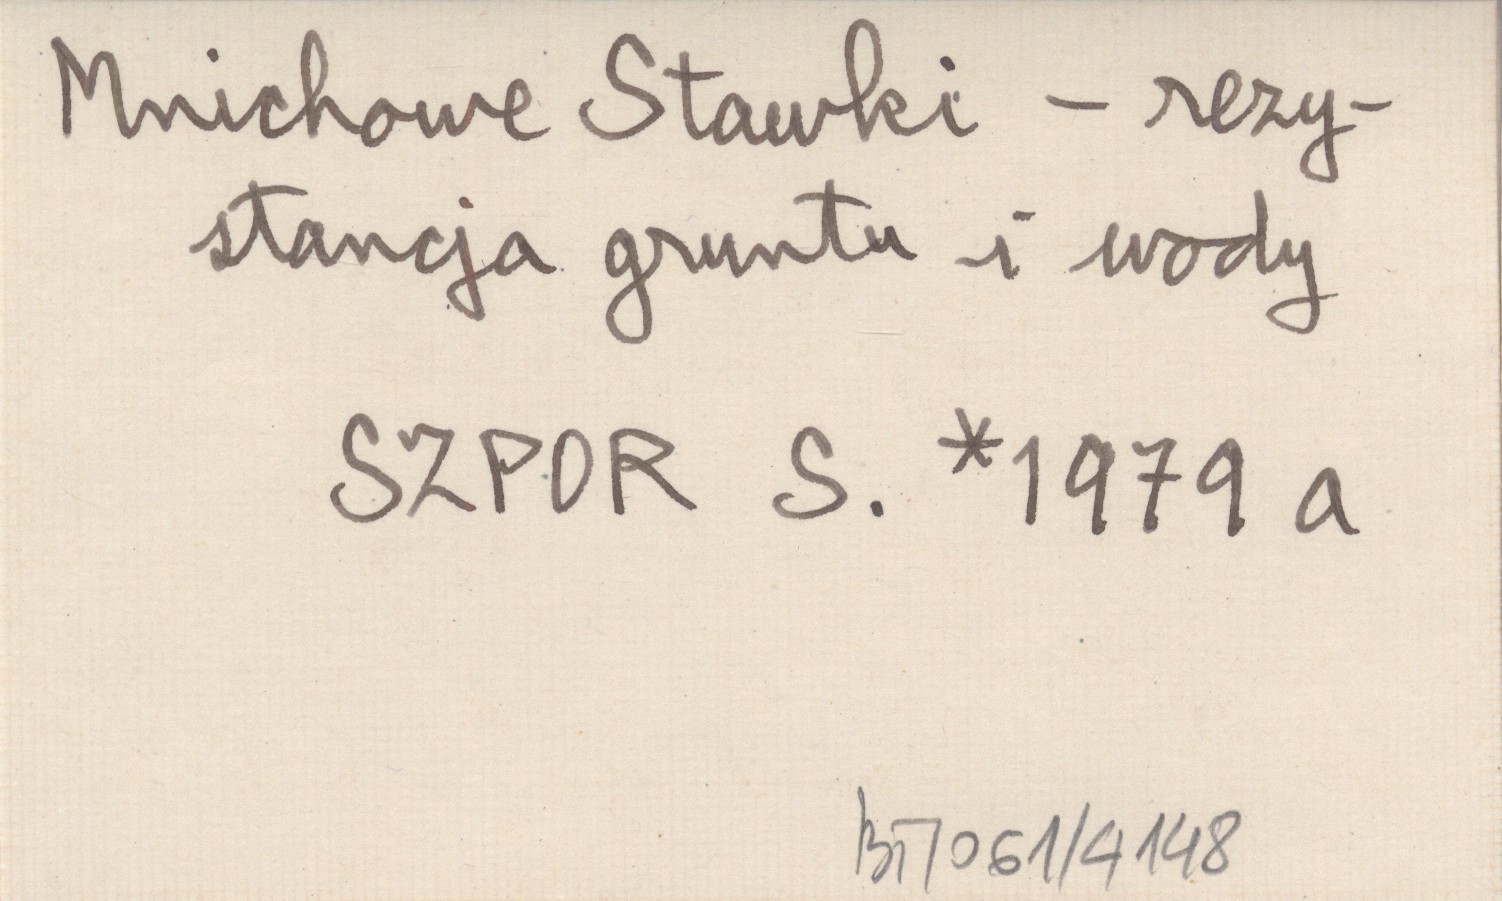 Mnichowe Stawki – rezy-
stancja gruntu i wody
SZPOR S. *1979 a
BT/061/4148